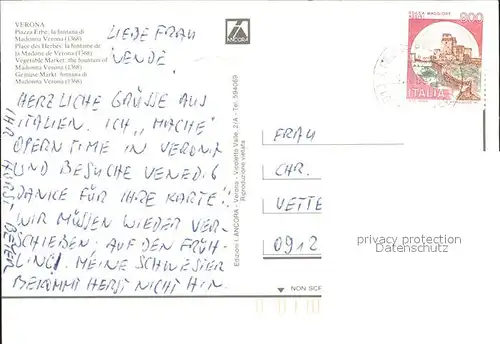 VERONA
Piazza Erbe: la fontana di
Madonna Verona (1368)
Place des Herbes: la fontaine de
la Madone de Verona (1368)
Vegetable Market: the fountain of
Madonna Verona (1368)
Gemüse Markt: fontana di
Madonna Verona (1368)
LIEBE FRAU
VENDE.
HERZLICHE GRÜSSE AUS
ITALIEN. ICH „MACHE"
OPERN TIME IN VERONA
UND BESUCHE VENEDIG
DANKE FÜR IHRE KARTE!
WIR MÜSSEN WIEDER VER
SCHIEBEN: AUF DEN FRÜH
LING! MEINE SCHWESTER
BEKOMMT HERST NICHT HIN.
IHR HORST BEYER
ANCORA
Edizioni L'ANCORA - Verona - Vicoletto Valle, 2/A - Tel. 594069
Riproduzione vietata
ROCCA MAGGIORE
ASSISI
600
ITALIA
FRAU
CHR.
VETTE
0912
privacy protection
Datenschutz
NON SCR